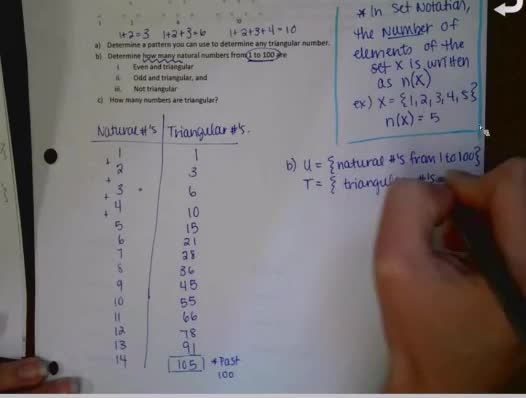 1 3 6 10
1+2=3 1+2+3=6 1+2+3+4=10
a) Determine a pattern you can use to determine any triangular number.
b) Determine how many natural numbers from 1 to 100 are
i. Even and triangular
ii. Odd and triangular, and
iii. Not triangular
c) How many numbers are triangular?
* In Set Notation,
the Number of
elements of the
set X is written
as n(X)
ex) X = {1,2,3,4,5}
n(X) = 5
Natural #'s Triangular #'s.
1 1
+
2 3
+
3 6
+
4 10
+
5 15
6 21
7 28
8 36
9 45
10 55
11 66
12 78
13 91
14 105 *Past
100
b) U = {natural #'s from 1 to 100}
T = { triangular #'s